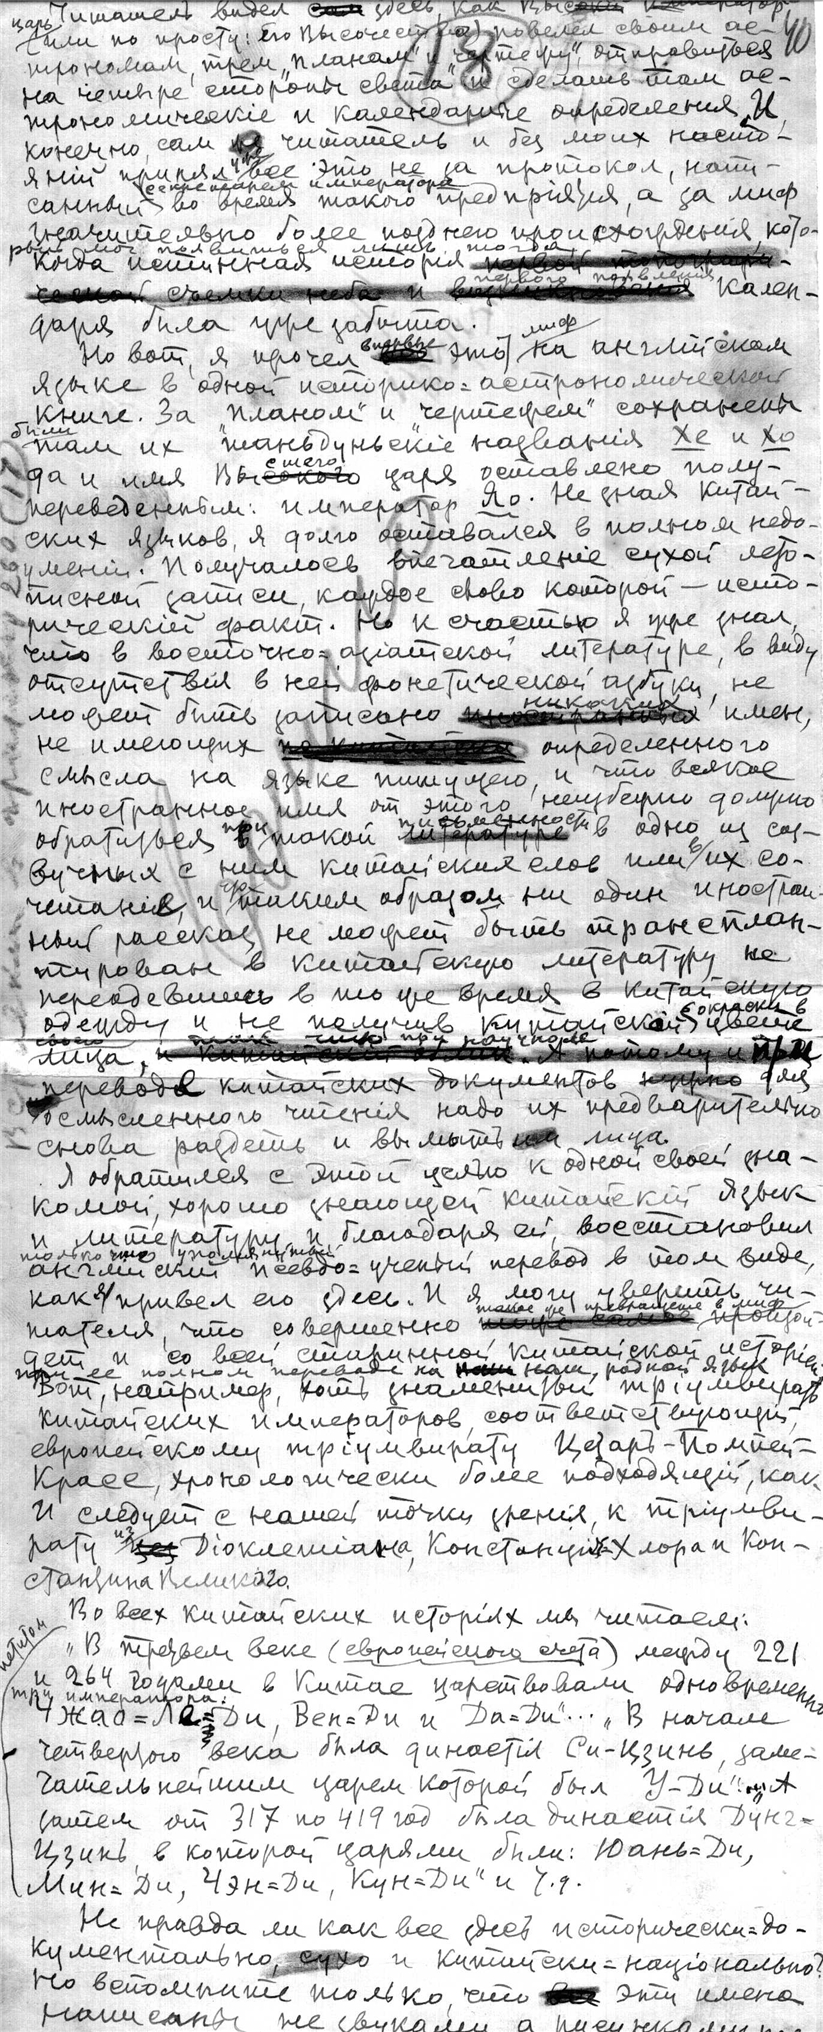 Читатель видел здесь, как Высо
царь
(или по просту: его Высочество) повелел своим ас-
40
13
трономам, трем "планам" и "чертежу" отправиться
на четыре стороны света и сделать там ас-
трономическіе и календарные определения. И,
конечно, сам читатель и без моих насто-
яній принял все это не за протокол, напи-
секретарем императора
санный во время такого предпріятія, а за миф
значительно более позднего происхожденія, кото-
рый мог появиться лишь тогда
когда истинная исторія
первого появления
кален-
даря была уже забыта.
Но вот, я прочел впервые этот миф на англійском
языке в одной историко=астрономической
книге. За "планом" и "чертежем" сохранены
были
там их "таньдуньскіе" названія Хе и Хо
да и имя Высшего царя оставлено полу-
переведенным: император Яо. Не зная Китай-
ских языков, я долго оставался в полном недо-
уменіи. Получалось впечатленіе сухой лето-
писной записи, каждое слово которой — исто-
рическій факт. Но к счастью я уже знал,
что в восточно=азіатской литературе, в виду
отсутствія в ней фонетической азбуки, не
может быть записано никаких имен,
не имеющих определенного
смысла на языке пишущего, и что всякое
иностранное имя от этого неизбежно должно
обратиться при такой письменности в одно из соз-
вучных с ним китайских слов или в их со-
четанія, и таким образом ни один иностран-
ный рассказ не может быть трансплан-
тирован в Китайскую литературу не
переодевшись в то же время в Китайскую
одежду и не получив Китайской окраски в цвете
своего
лица,
При
переводе китайских документов для
осмысленного чтенія надо их предварительно
снова раздеть и вымыть лица.
Я обратился с этой целью к одной своей зна-
комой, хорошо знающей китайскій язык
и литературу и благодаря ей, восстановил
только что упомянутый
англійскій псевдо=ученый перевод в том виде,
как я привел его здесь. И я могу уверить чи-
тателя, что совершенно такое же превращение в миф произой-
дет и со всей старинной китайской исторіей
при ее полном переводе на наш, родной язык
Вот, например, хоть знаменитый тріумвират
китайских императоров, соответствующій
европейскому тріумвирату Цезарь-Помпей-
Красс, хронологически более подходящій, как
и следует с нашей точки зренія, к тріумви-
рату из Діоклетіана, Констанція-Хлора и Кон-
стантина Великого.
Во всех китайских исторіях мы читаем:
петитом
"В третьем веке (европейского счета) между 221
и 264 годами в Китае царствовали одновременно
три императора:
Чжао=Ле=Ди, Вен=Ди и Да=Ди"... "В начале
четвертого века была династія Си-Цзинь, заме-
чательнейшим царем которой был У-Ди"... "А
затем от 317 по 419 год была династія Дунг=
Цзинь, в которой царями были: Юань=Ди,
Мин=Ди, Чэн=Ди, Кун=Ди" и т.д.
Не правда ли как все здесь исторически=до-
кументально, и китайски=національно?
Но вспомните только, что эти имена
написаны не звуками а рисунками